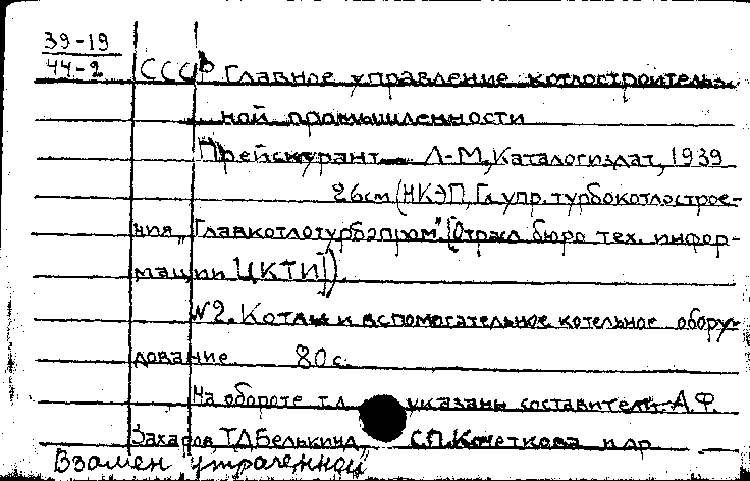 39-19
44-2
СССР Главное управление котлостроитель-
ной промышленности
Прейскурант Л-М, Каталогиздат, 1939
26см (НКЭП, Гл. упр. турбокотлострое-
ния „Главкотлотурбопром". [Отрасл. бюро тех. инфор-
мации ЦКТИ]).
№2. Котлы и вспомогательное котельное обору-
дование 80с.
На обороте т.л. указаны составители: А.Ф.
Захаров, Т.Д. Белькинд, С.П. Кочеткова и др
Взамен утраченной